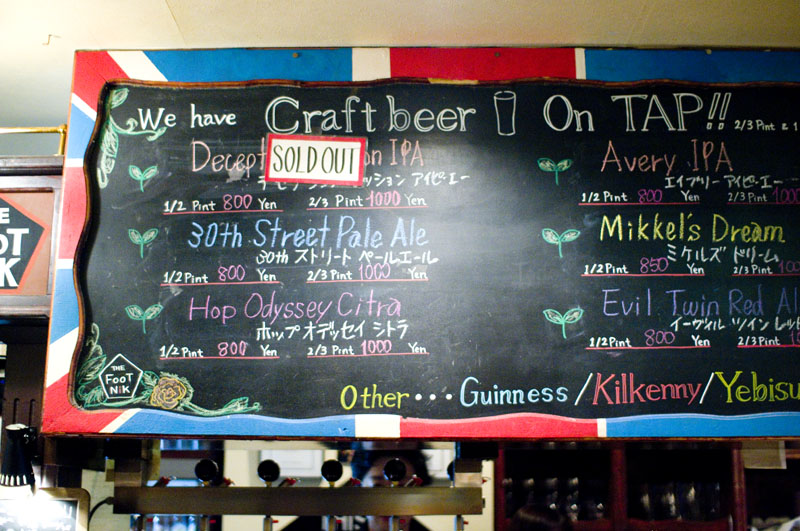 We have Craft beer On TAP!! 2/3 Pint & 1
Decept on IPA
SOLD OUT
ッション アイピーエー
1/2 Pint 800 Yen 2/3 Pint 1000 Yen
30th Street Pale Ale
30th ストリート ペールエール
1/2 Pint 800 Yen 2/3 Pint 1000 Yen
Hop Odyssey Citra
ホップ オデッセイ シトラ
1/2 Pint 800 Yen 2/3 Pint 1000 Yen
Avery IPA
エイブリー アイピーエー
1/2 Pint 800 Yen 2/3 Pint 1000
Mikkel's Dream
ミケルズ ドリーム
1/2 Pint 850 Yen 2/3 Pint
Evil Twin Red Al
イーヴィル ツイン レッド
1/2 Pint 800 Yen 2/3 Pint
Other... Guinness/Kilkenny/Yebisu
THE FooT NiK
THE
FooT
NiK